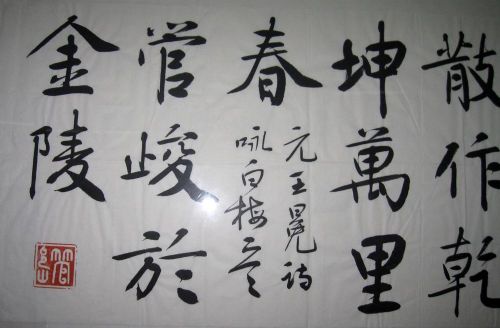 散作乾
坤萬里
春
元王冕詩
咏白梅
管峻於
金陵